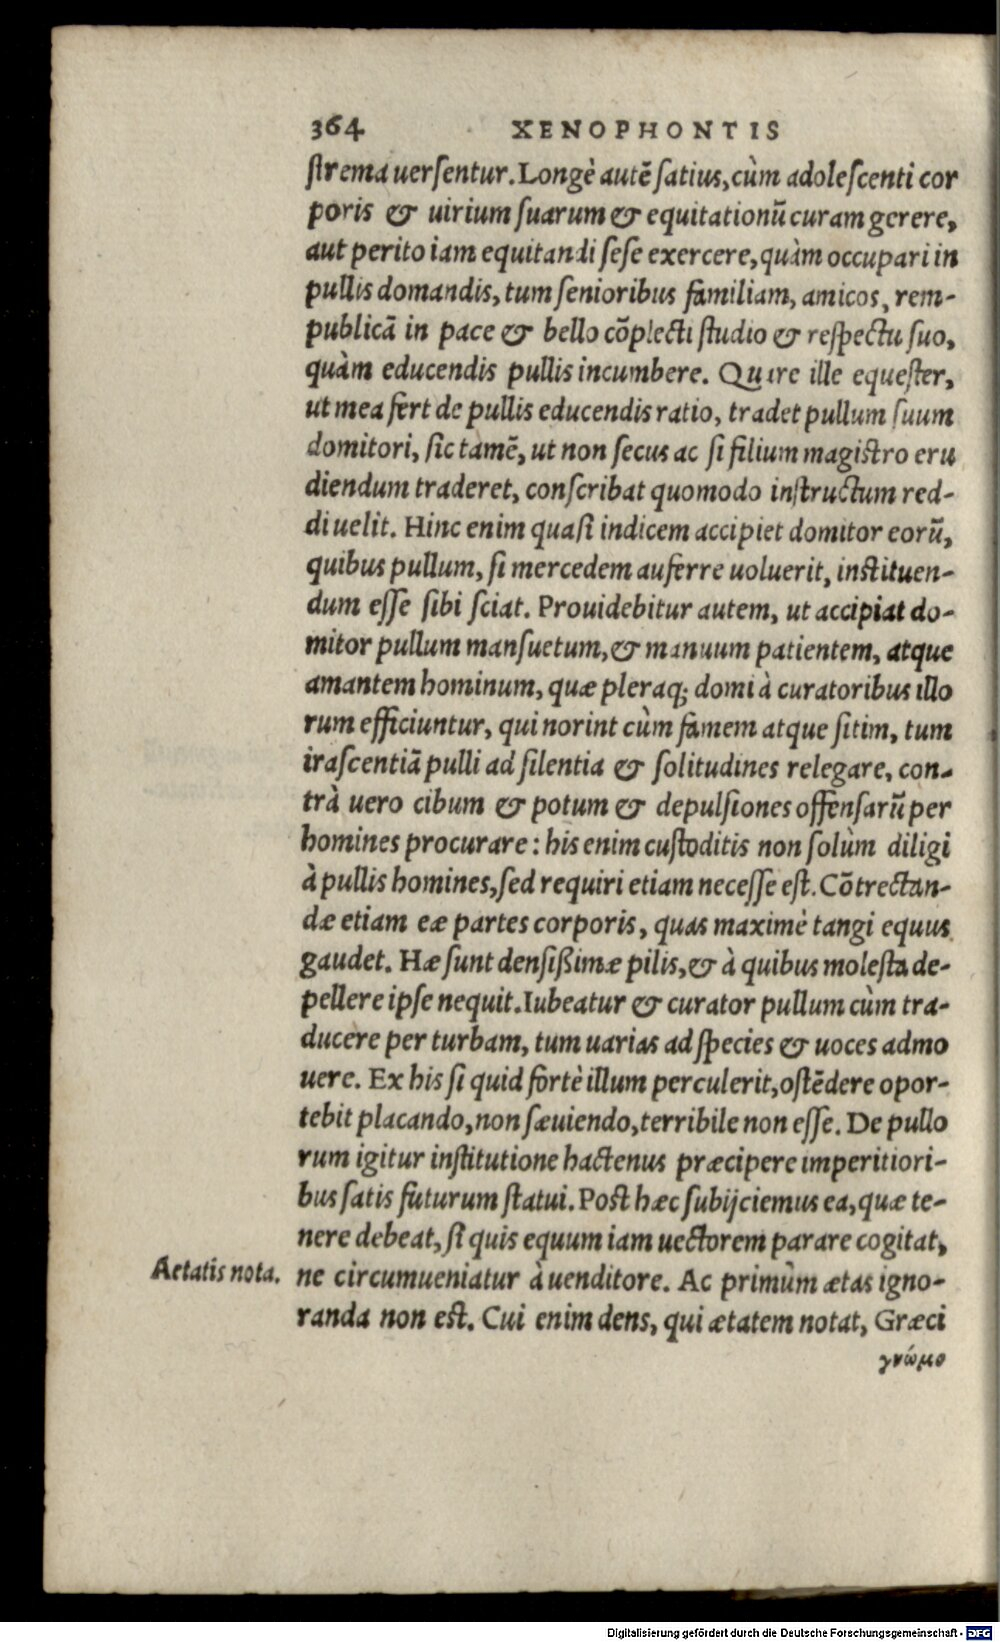 364 XENOPHONTIS
strema uersentur. Longè autē satius, cùm adolescenti cor
poris & uirium suarum & equitationū curam gerere,
aut perito iam equitandi sese exercere, quàm occupari in
pullis domandis, tum senioribus familiam, amicos, rem-
publicā in pace & bello cōplecti studio & respectu suo,
quàm educendis pullis incumbere. Quare ille equester,
ut mea fert de pullis educendis ratio, tradet pullum suum
domitori, sic tamē, ut non secus ac si filium magistro eru
diendum traderet, conscribat quomodo instructum red-
di uelit. Hinc enim quasi indicem accipiet domitor eorū,
quibus pullum, si mercedem auferre uoluerit, instituen-
dum esse sibi sciat. Prouidebitur autem, ut accipiat do-
mitor pullum mansuetum, & manuum patientem, atque
amantem hominum, quæ pleraq; domi à curatoribus illo
rum efficiuntur, qui norint cùm famem atque sitim, tum
irascentiā pulli ad silentia & solitudines relegare, con-
trà uero cibum & potum & depulsiones offensarū per
homines procurare: his enim custoditis non solùm diligi
à pullis homines, sed requiri etiam necesse est. Cōtrectan-
dæ etiam eæ partes corporis, quas maximè tangi equus
gaudet. Hæ sunt densißimæ pilis, & à quibus molesta de-
pellere ipse nequit. Iubeatur & curator pullum cùm tra-
ducere per turbam, tum uarias ad species & uoces admo
uere. Ex his si quid fortè illum perculerit, ostēdere opor-
tebit placando, non sæuiendo, terribile non esse. De pullo
rum igitur institutione hactenus præcipere imperitiori-
bus satis futurum statui. Post hæc subijciemus ea, quæ te-
nere debeat, si quis equum iam uectorem parare cogitat,
Aetatis nota. ne circumueniatur à uenditore. Ac primùm ætas igno-
randa non est. Cui enim dens, qui ætatem notat, Græci
γνώμο
Digitalisierung gefördert durch die Deutsche Forschungsgemeinschaft - DFG